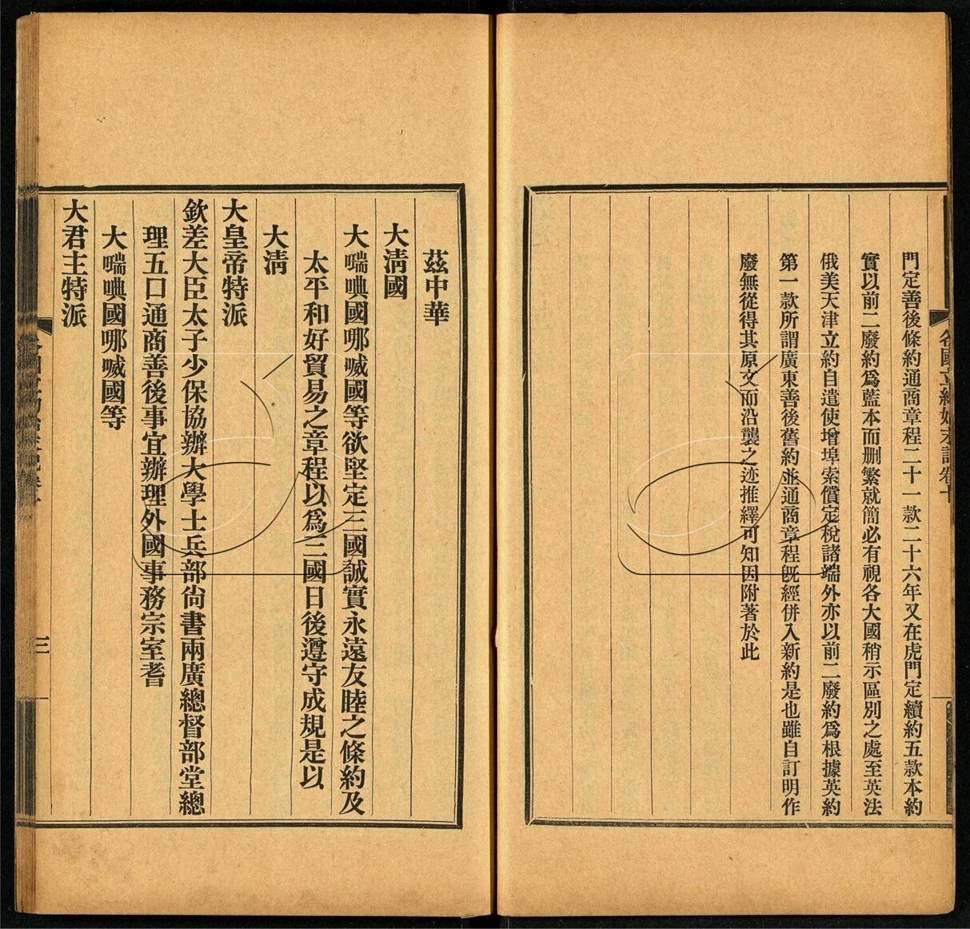 各國立約始末記卷十
門定善後條約通商章程二十一款二十六年又在虎門定續約五款本約
實以前二廢約爲藍本而刪繁就簡必有視各大國稍示區別之處至英法
俄美天津立約自遣使增埠索償定稅諸端外亦以前二廢約爲根據英約
第一款所謂廣東善後舊約並通商章程旣經併入新約是也雖自訂明作
廢無從得其原文而沿襲之迹推繹可知因附著於此
茲中華
大淸國
大㗨㗌國哪㖪國等欲堅定三國誠實永遠友睦之條約及
太平和好貿易之章程以爲三國日後遵守成規是以
大淸
大皇帝特派
欽差大臣太子少保協辦大學士兵部尙書兩廣總督部堂總
理五口通商善後事宜辦理外國事務宗室耆
大㗨㗌國哪㖪國等
大君主特派
三